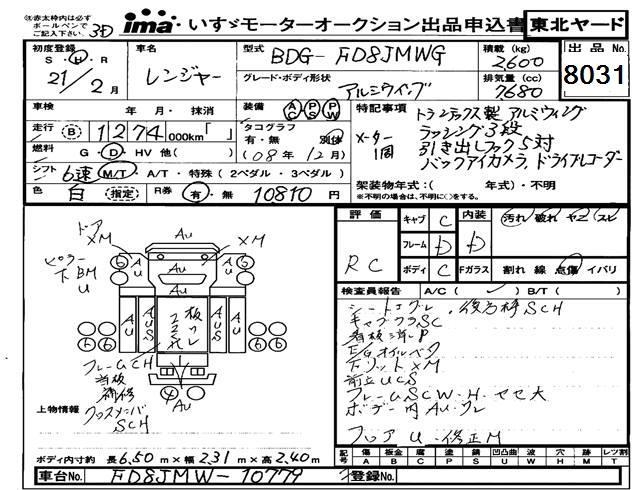 注赤太枠内は必ず
ボールペンで
ご記入下さい
ima いすゞモーターオークション出品申込書
東北ヤード
初度登録
S・H・R
21/2月
車名
レンジャー
型式
BDG-FD8JMWG
グレード・ボディ形状
アルミウイング
積載 (kg)
2600
排気量 (cc)
7680
出品No.
8031
車検 年 月・抹消
走行 B 1274 000km「 」
燃料 G・D・HV 他( )
シフト 6速 M/T・A/T・特殊(2ペダル・3ペダル)
色 白 (指定) R券 有・無 10810 円
装備 AC PS PW
タコグラフ
有・無 別体
(08年12月)
特記事項
メーター
1周
トランテックス製 アルミウィング
ラッシング3段
引き出しフック5対
バックアイカメラ、ドライブレコーダー
架装物年式:( 年式)・不明
※不明の場合は、不明に○をする。
評価
RC
キャブ C
フレーム D
ボディ C
内装 D
Fガラス
汚れ 破れ ヤニ スレ
割れ 線 点傷 イバリ
検査員報告 A/C( ) B/T( )
キャブフラSC
E/Gオイルベタ
前立UCS
フレームSCW・H・サビ大
ボデー内AU・クレ
フロアU・修正M
ドア
XM
AU
XM
ピラー
下BM
U
フレームCH
補修
クロスメンバ
SCH
上物情報
ボディ内寸約 長6.50m×幅2.31m×高2.40m
記号 傷A 板金B 腐C 塗P 錆S 凹凸曲U 波W 穴H 跡M レツ割T
車台No. FD8JMW-10779
登録No.